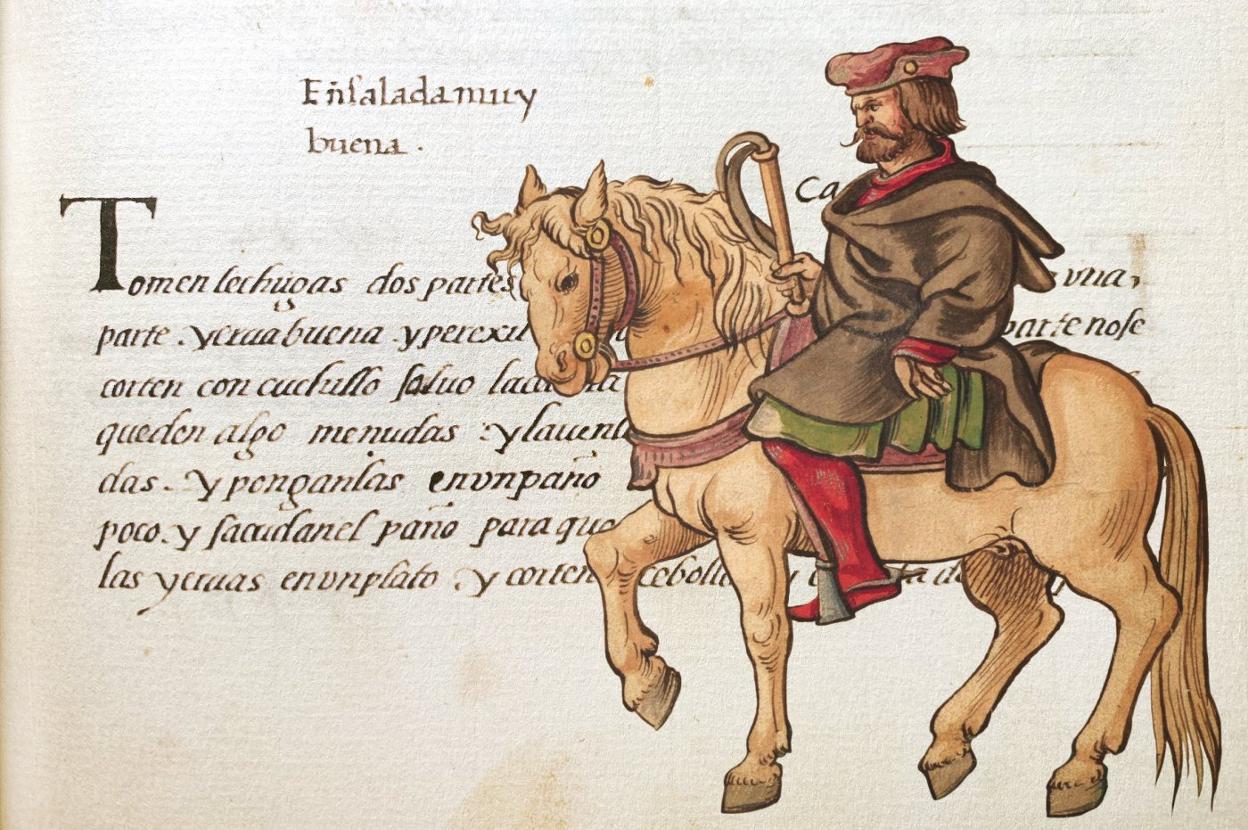 Eñsalada muy
buena.
Ca
Tomen lechugas dos partes vna,
parte. yerua buena y perexil parte no se
corten con cuchillo saluo
queden algo menudas y
das. y ponganlas en vn paño
poco. y sacudan el paño para que
las yeruas en vn plato. y corten